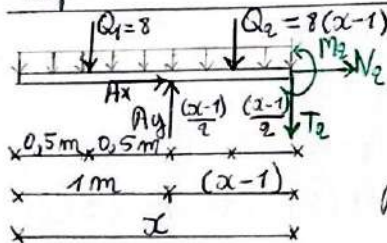 Q₁=8 Q₂ = 8(x-1)
M₂
N₂
Ax
Ay (x-1)/2 (x-1)/2 T₂
0,5m 0,5m
1m (x-1)
x